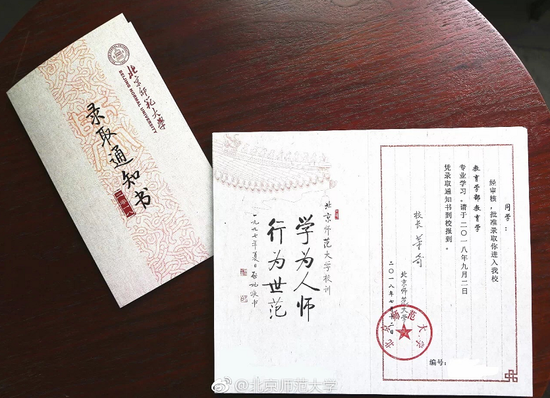 北京师范大学
录取通知书
二〇一八
同学：
经审核，批准录取你进入我校
教育学部教育学
专业学习。请于二〇一八年九月二日
凭录取通知书到校报到。
校长 董奇
北京师范大学
二〇一八年七月
编号：
北京师范大学
学为人师
行为世范
北京师范大学校训
一九九七年夏日 启功敬书
@北京师范大学